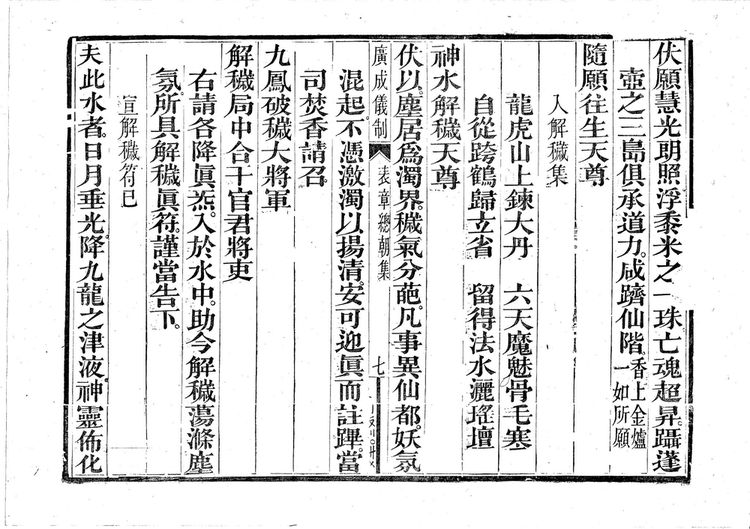 伏願慧光朗照浮黍米之一珠亡魂超昇躡蓬
壺之三島俱承道力咸躋仙階香上金爐一如所願
隨願往生天尊
入解穢集
龍虎山上鍊大丹 六天魔魅骨毛寒
自從跨鶴歸立省 留得法水灑瑤壇
神水解穢天尊
伏以塵居爲濁界穢氣分葩凡事異仙都妖氛
廣成儀制 表章總朝集 七
混起不憑激濁以揚清安可迎眞而註蹕當
司焚香請召
九鳳破穢大將軍
解穢局中合干官君將吏
右請各降眞炁入於水中助今解穢蕩滌塵
氛所具解穢眞符謹當告下
宣解穢符已
夫此水者日月垂光降九龍之津液神靈佈化